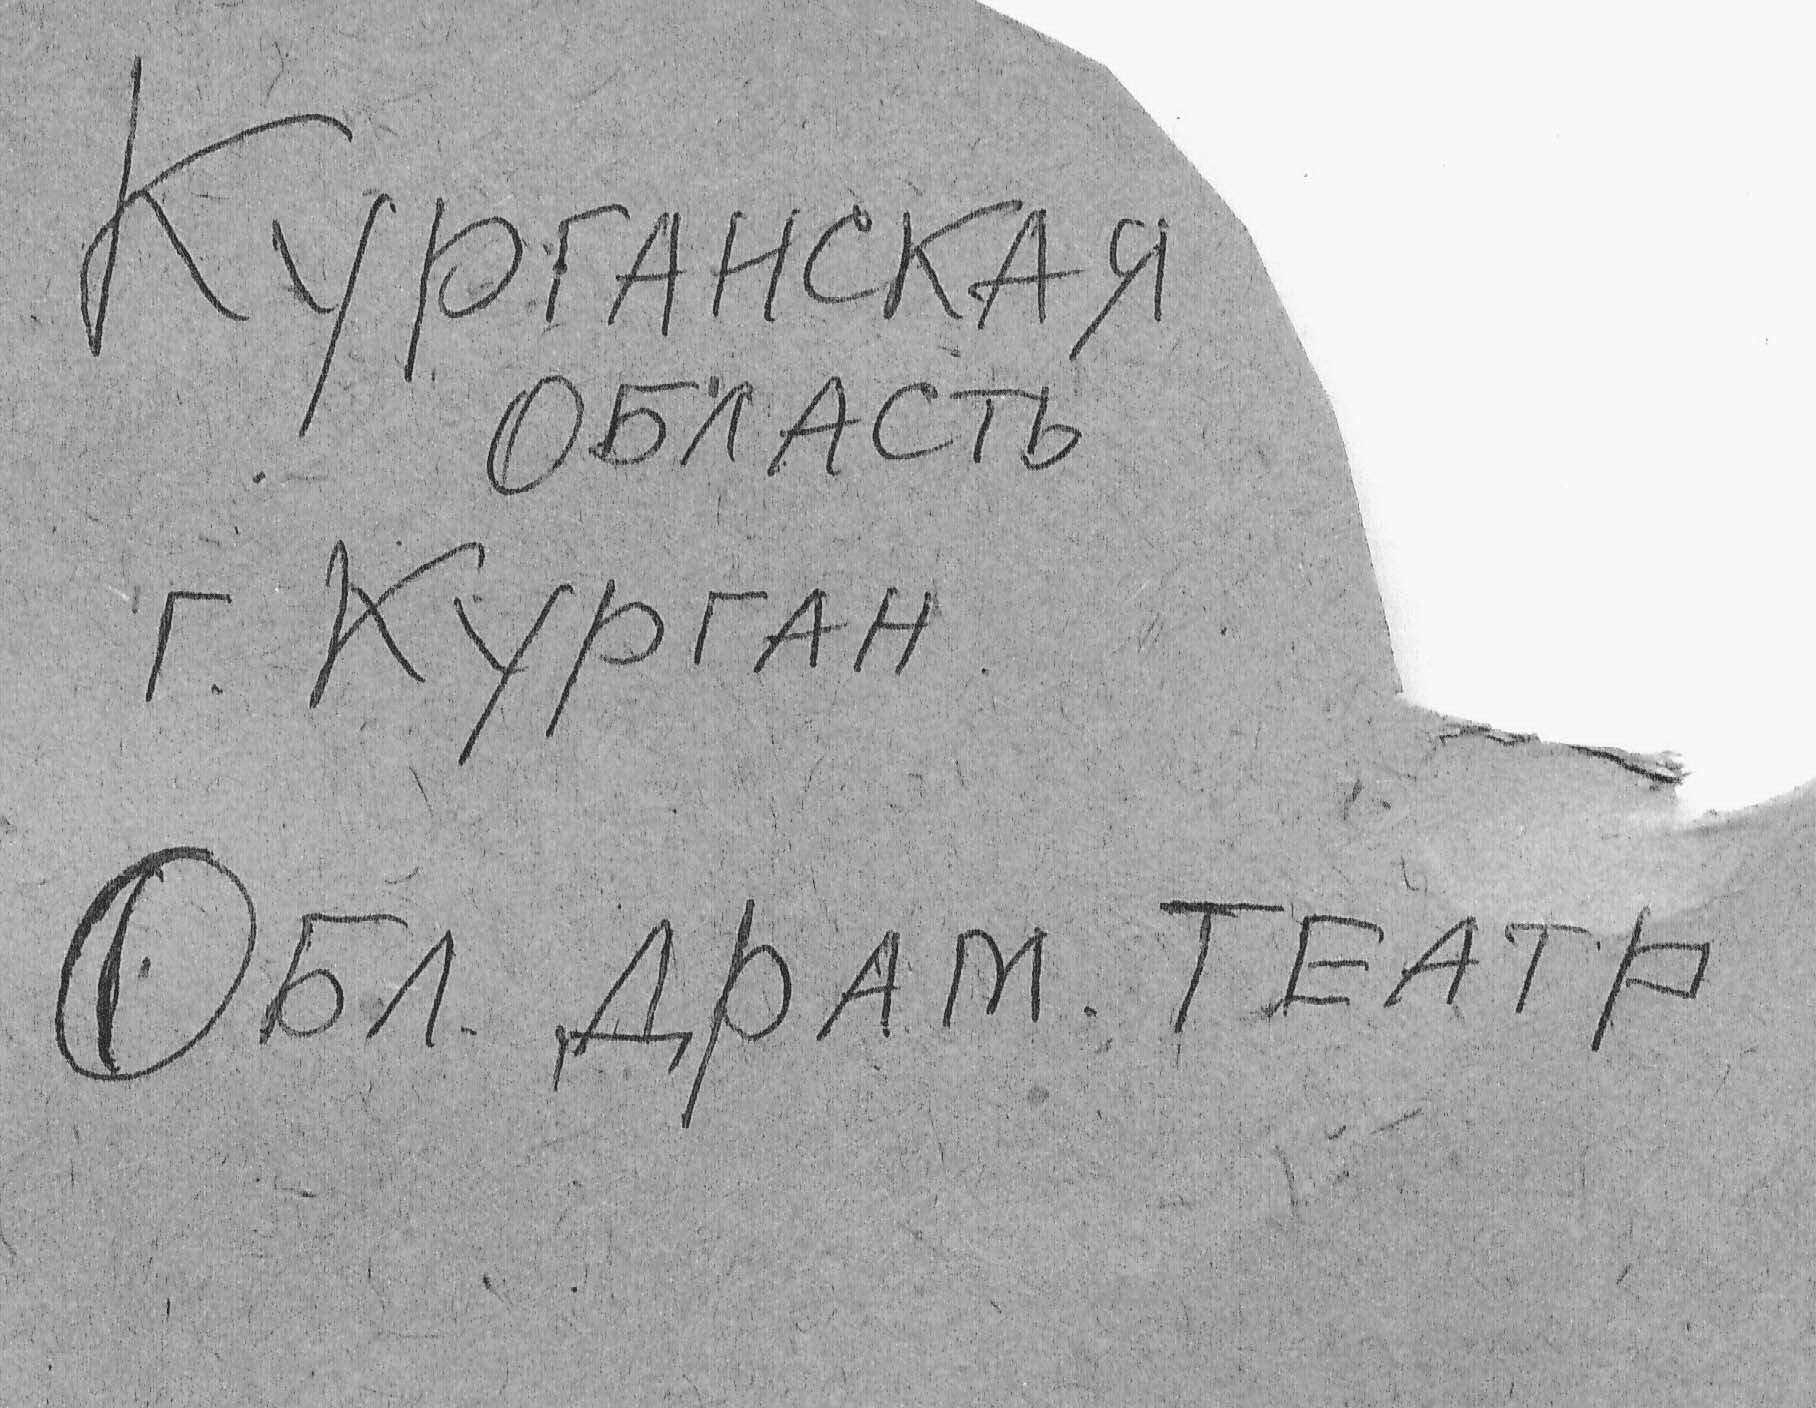 Курганская
область
г. Курган
Обл. драм. театр